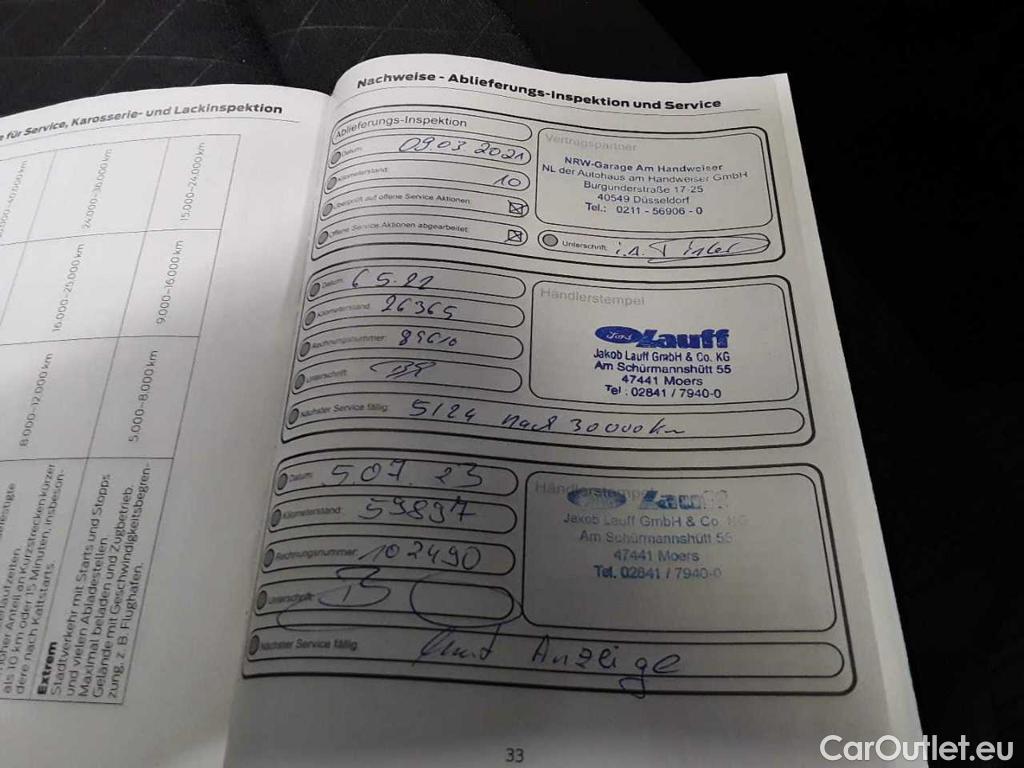 für Service, Karosserie- und Lackinspektion
24.000–36.000 km
15.000–24.000 km
16.000–25.000 km
9.000–16.000 km
8.000–12.000 km
5.000–8.000 km
als 10 km oder 15 Minuten, insbeson-
dere nach Kaltstarts.
Extrem
Stadtverkehr mit Starts und Stopps
und vielen Abladestellen.
Maximal beladen und Zugbetrieb.
Gelände mit Geschwindigkeitsbegren-
zung, z. B. Flughafen.
Nachweise - Ablieferungs-Inspektion und Service
Ablieferungs-Inspektion
Datum: 09.03.2021
Kilometerstand: 10
Überprüft auf offene Service Aktionen:
Offene Service Aktionen abgearbeitet:
Vertragspartner
NRW-Garage Am Handweiser
NL der Autohaus am Handweiser GmbH
Burgunderstraße 17-25
40549 Düsseldorf
Tel.: 0211 - 56906 - 0
Unterschrift: i.A.
Datum: 6 5.22
Kilometerstand: 26365
Rechnungsnummer: 89610
Unterschrift:
Nächster Service fällig: 5/24 nach 30000 km
Händlerstempel
Ford Lauff
Jakob Lauff GmbH & Co. KG
Am Schürmannshütt 55
47441 Moers
Tel.: 02841 / 7940-0
Datum: 5.07.23
Kilometerstand: 59897
Rechnungsnummer: 102490
Unterschrift:
Nächster Service fällig: Anzeige
Händlerstempel
Lauff
Jakob Lauff GmbH & Co. KG
Am Schürmannshütt 55
47441 Moers
Tel. 02841 / 7940-0
33
CarOutlet.eu